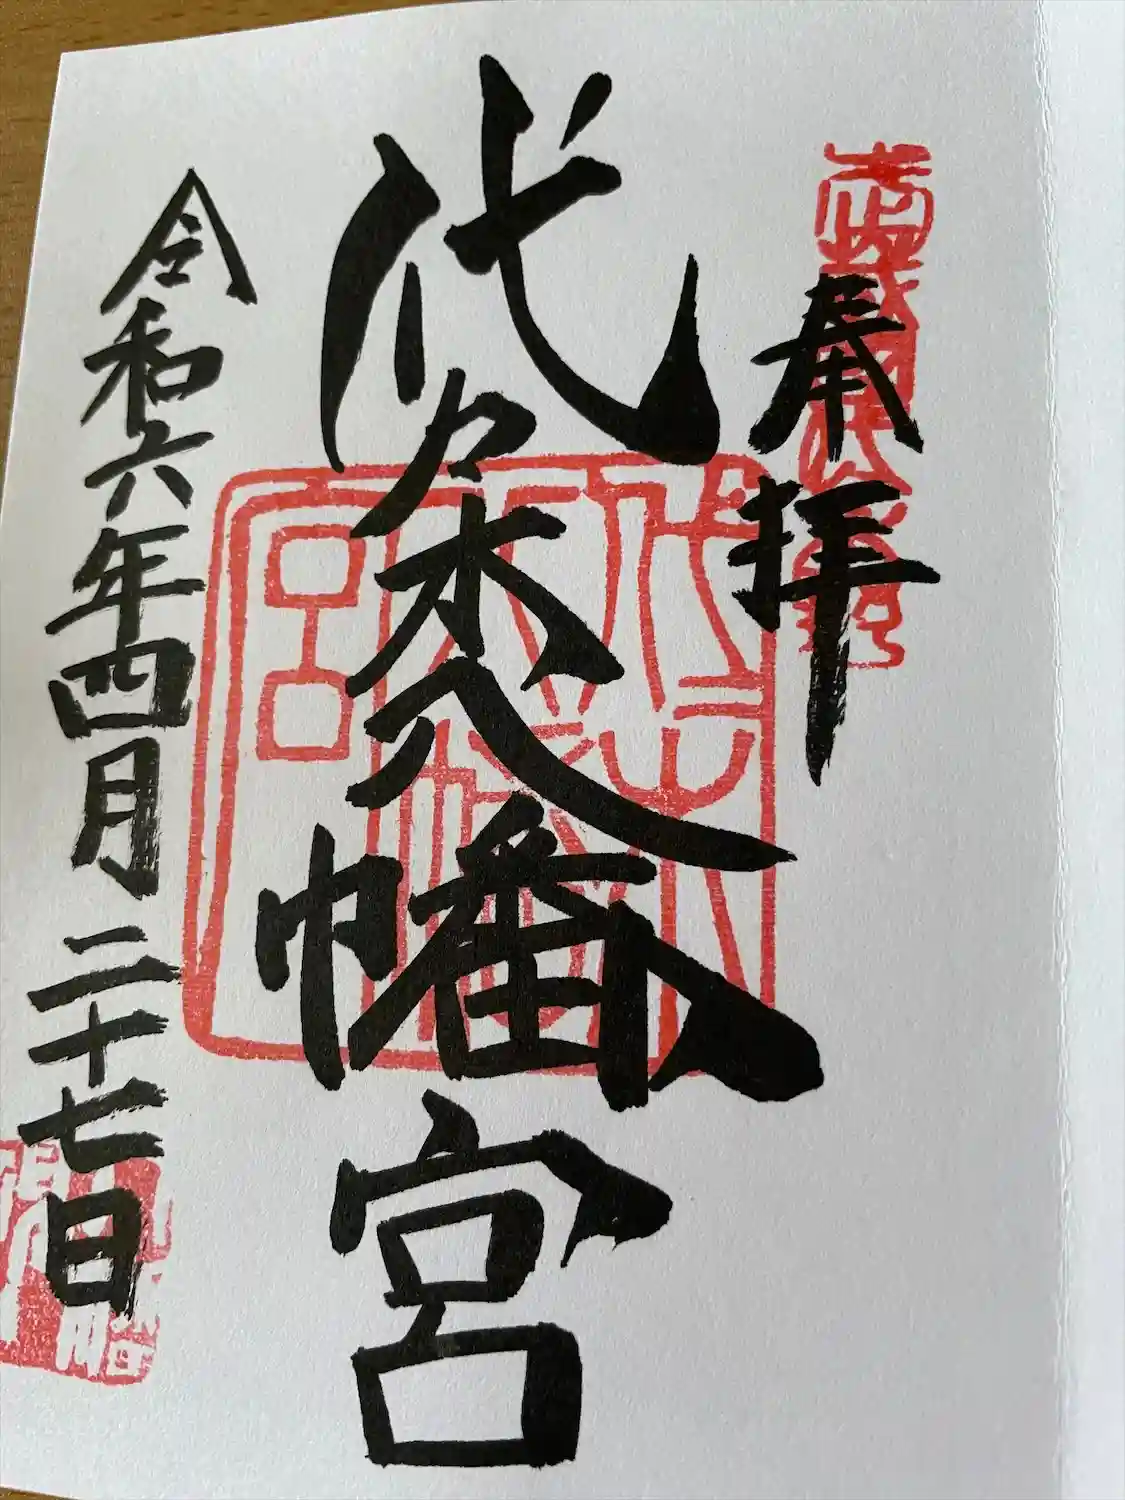 奉拝
代々木八幡宮
令和六年四月二十七日
代々木八幡宮